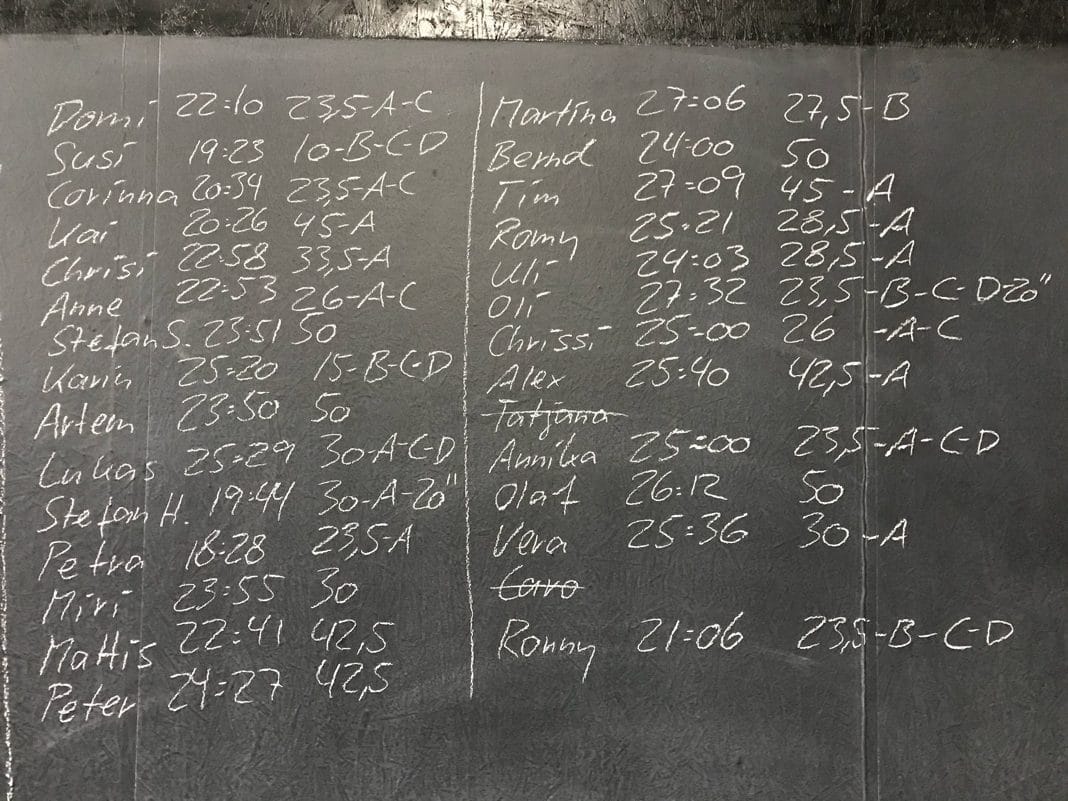 Domi 22:10 23,5-A-C
Susi 19:23 10-B-C-D
Corinna 20:34 23,5-A-C
Kai 20:26 45-A
Chrisi 22:58 33,5-A
Anne 22:53 26-A-C
Stefan S. 23:51 50
Karin 25:20 15-B-C-D
Artem 23:50 50
Lukas 25:29 30-A-C-D
Stefan H. 19:44 30-A-20"
Petra 18:28 23,5-A
Miri 23:55 30
Mattis 22:41 42,5
Peter 24:27 42,5
Martina 27:06 27,5-B
Bernd 24:00 50
Tim 27:09 45-A
Romy 25:21 28,5-A
Uli 24:03 28,5-A
Oli 27:32 23,5-B-C-D-20"
Chrissi 25:00 26-A-C
Alex 25:40 42,5-A
Tatjana
Annika 25:00 23,5-A-C-D
Olaf 26:12 50
Vera 25:36 30-A
Caro
Ronny 21:06 23,5-B-C-D